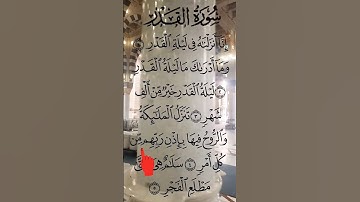 سُورَةُ الْقَدْرِ
إِنَّا أَنزَلْنَٰهُ فِى لَيْلَةِ الْقَدْرِ ١
وَمَا أَدْرَىٰكَ مَا لَيْلَةُ الْقَدْرِ
٢ لَيْلَةُ الْقَدْرِ خَيْرٌ مِّنْ أَلْفِ
شَهْرٍ ٣ تَنَزَّلُ الْمَلَٰٓئِكَةُ
وَالرُّوحُ فِيهَا بِإِذْنِ رَبِّهِم مِّن
كُلِّ أَمْرٍ ٤ سَلَٰمٌ هِىَ
مَطْلَعِ الْفَجْرِ ٥